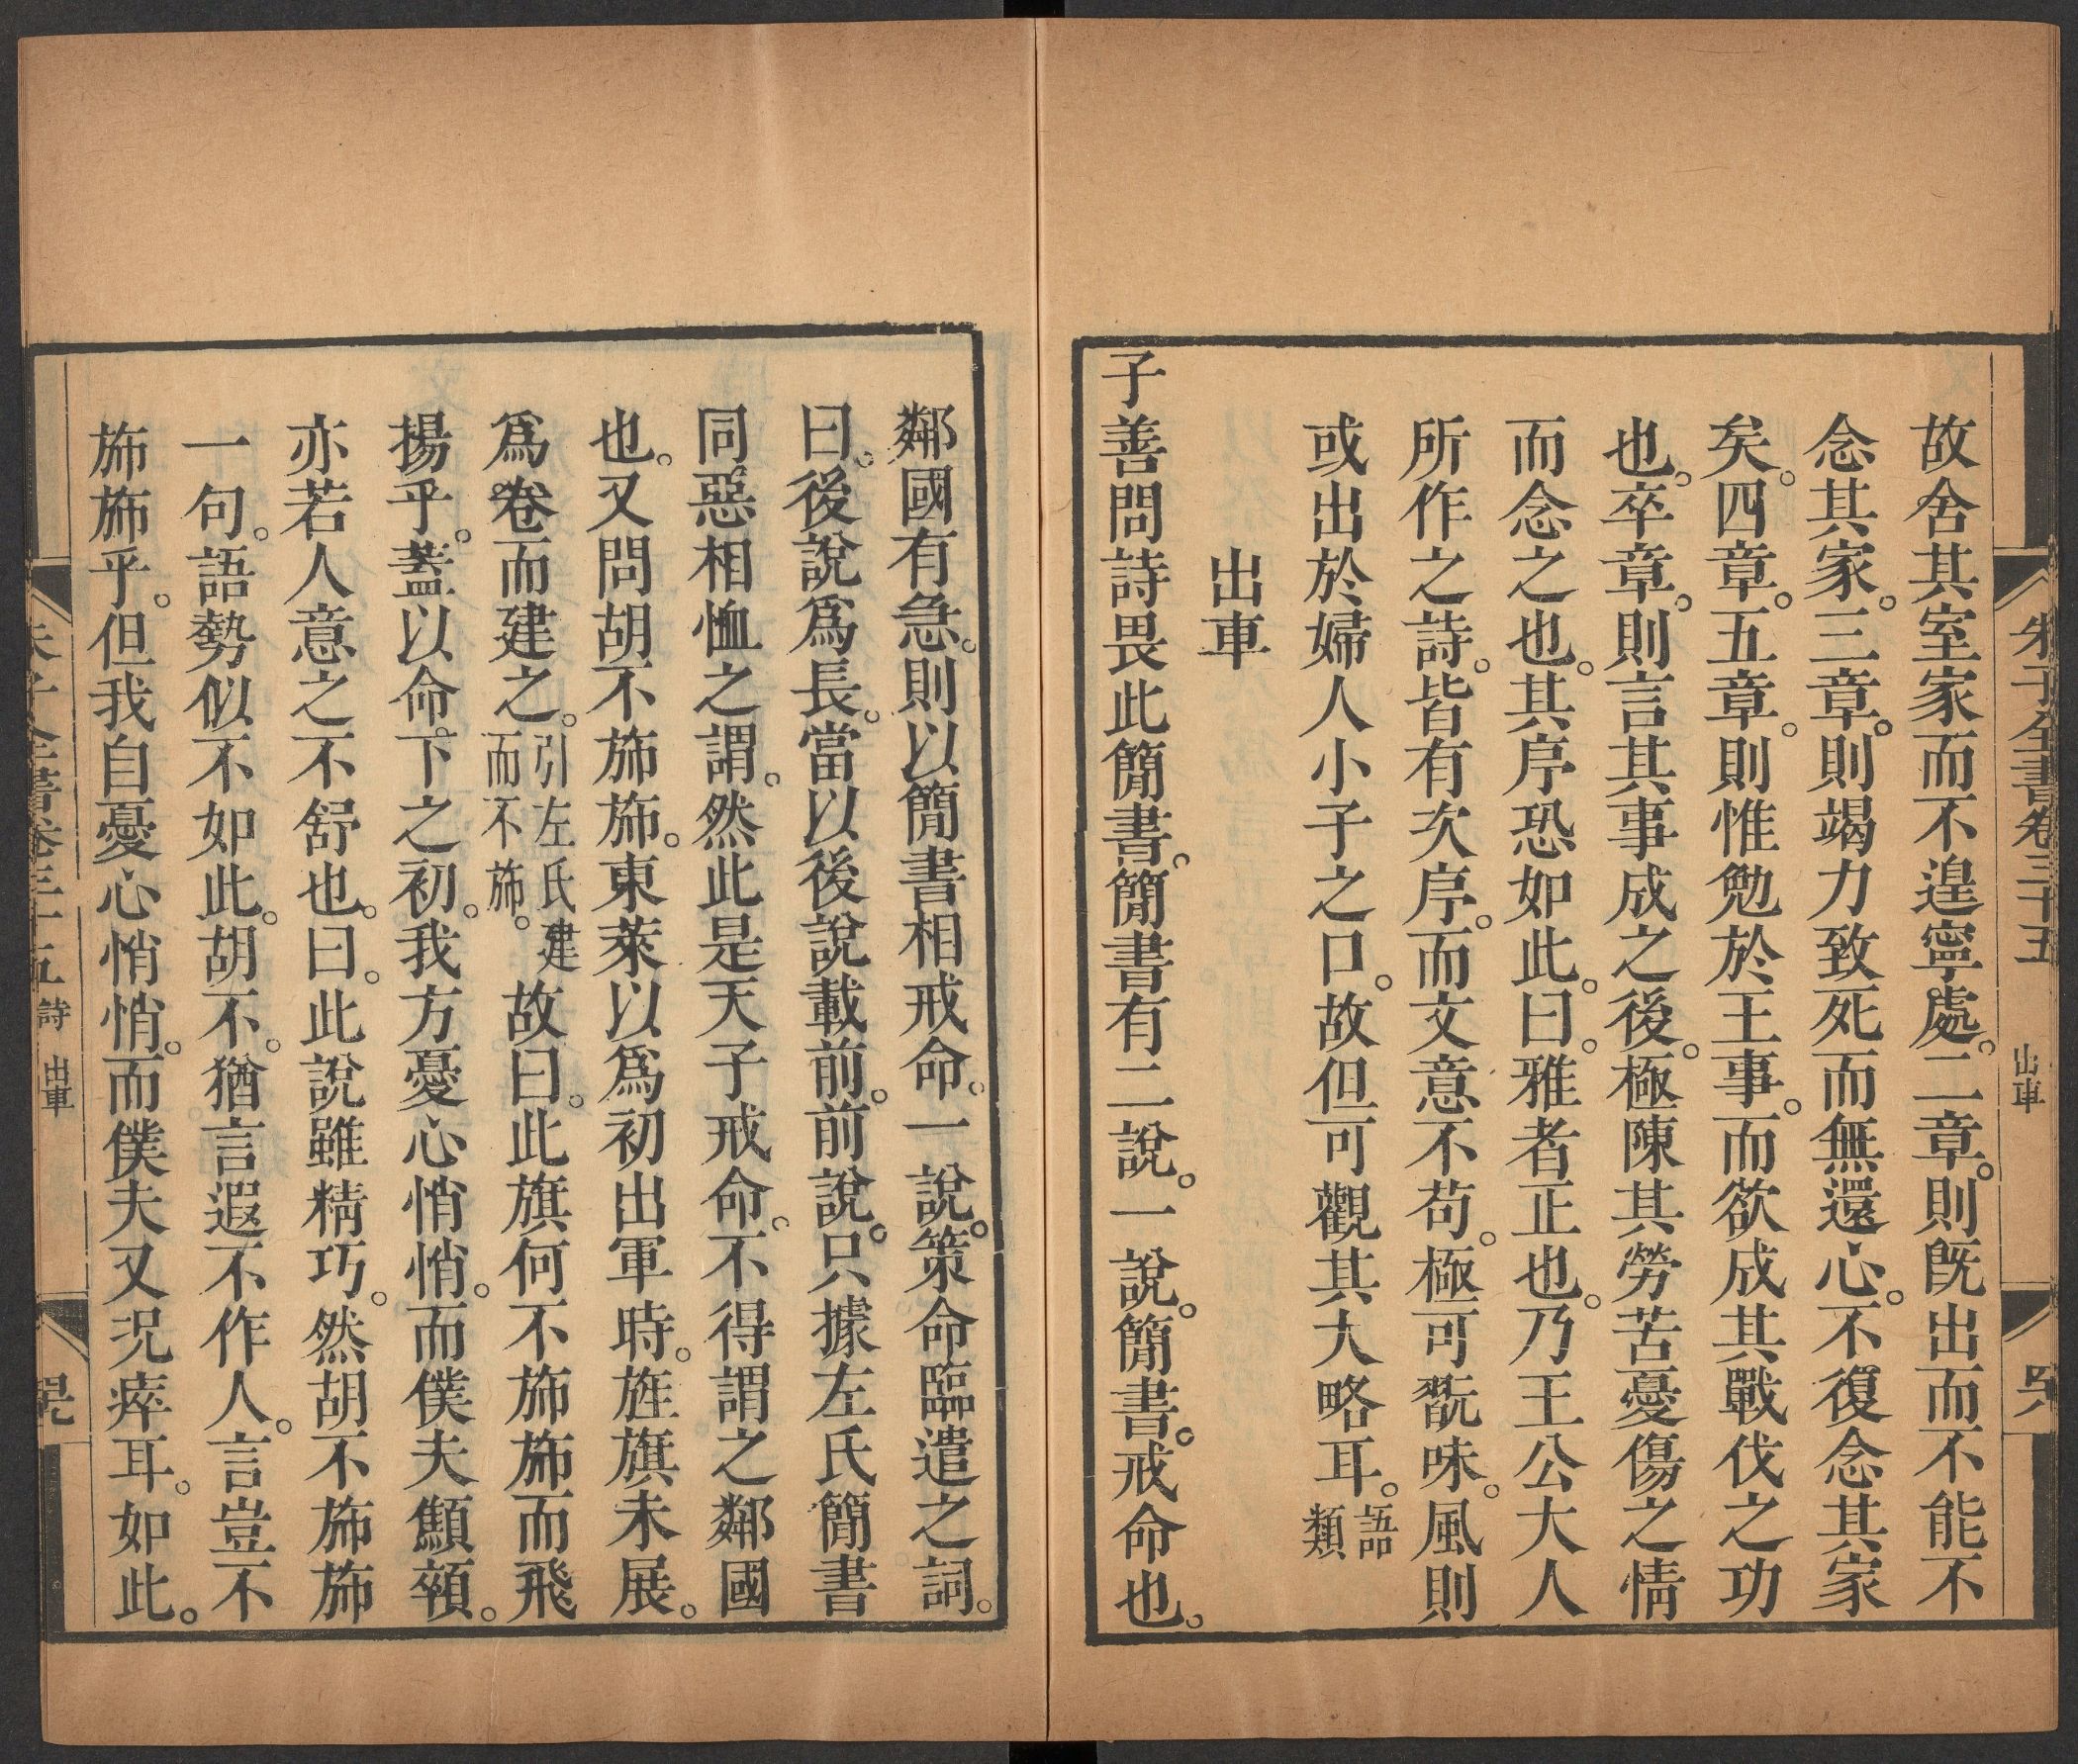 朱子全書卷三十五 出車 四六
故舍其室家而不遑寧處。二章。則旣出而不能不
念其家。三章。則竭力致死而無還心。不復念其家
矣。四章。五章。則惟勉於王事。而欲成其戰伐之功
也。卒章。則言其事成之後。極陳其勞苦憂傷之情
而念之也。其序恐如此。曰。雅者正也。乃王公大人
所作之詩。皆有次序。而文意不苟。極可翫味。風則
或出於婦人小子之口。故但可觀其大略耳。語類
出車
子善問詩畏此簡書。簡書有二說。一說。簡書。戒命也。
鄰國有急。則以簡書相戒命。一說。策命臨遣之詞。
曰。後說爲長。當以後說載前。前說。只據左氏簡書
同惡相恤之謂。然此是天子戒命。不得謂之鄰國
也。又問胡不旆旆。東萊以爲初出軍時。旌旗未展。
爲卷而建之。引左氏建而不旆。故曰。此旗何不旆旆而飛
揚乎。蓋以命下之初。我方憂心悄悄。而僕夫顦顇。
亦若人意之不舒也。曰。此說雖精巧。然胡不旆旆
一句。語勢似不如此。胡不。猶言遐不作人。言豈不
旆旆乎。但我自憂心悄悄。而僕夫又況瘁耳。如此。
朱子全書卷三十五 詩 出車